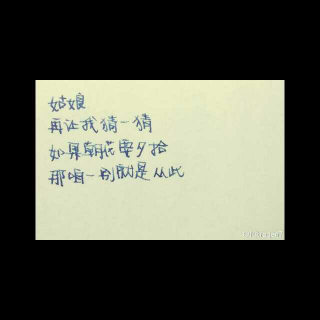 姑娘
再让我猜一猜
如果朝花要夕拾
那咱一别就是从此